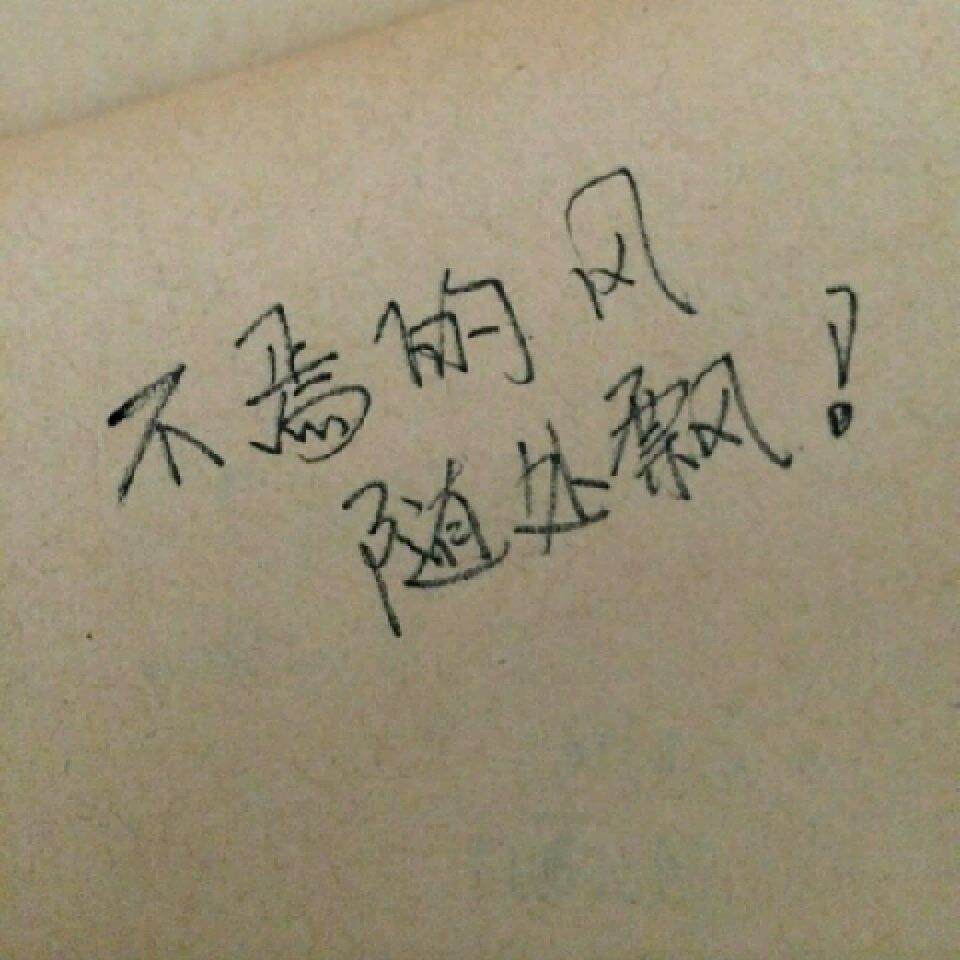 不焉的风
随处飘!